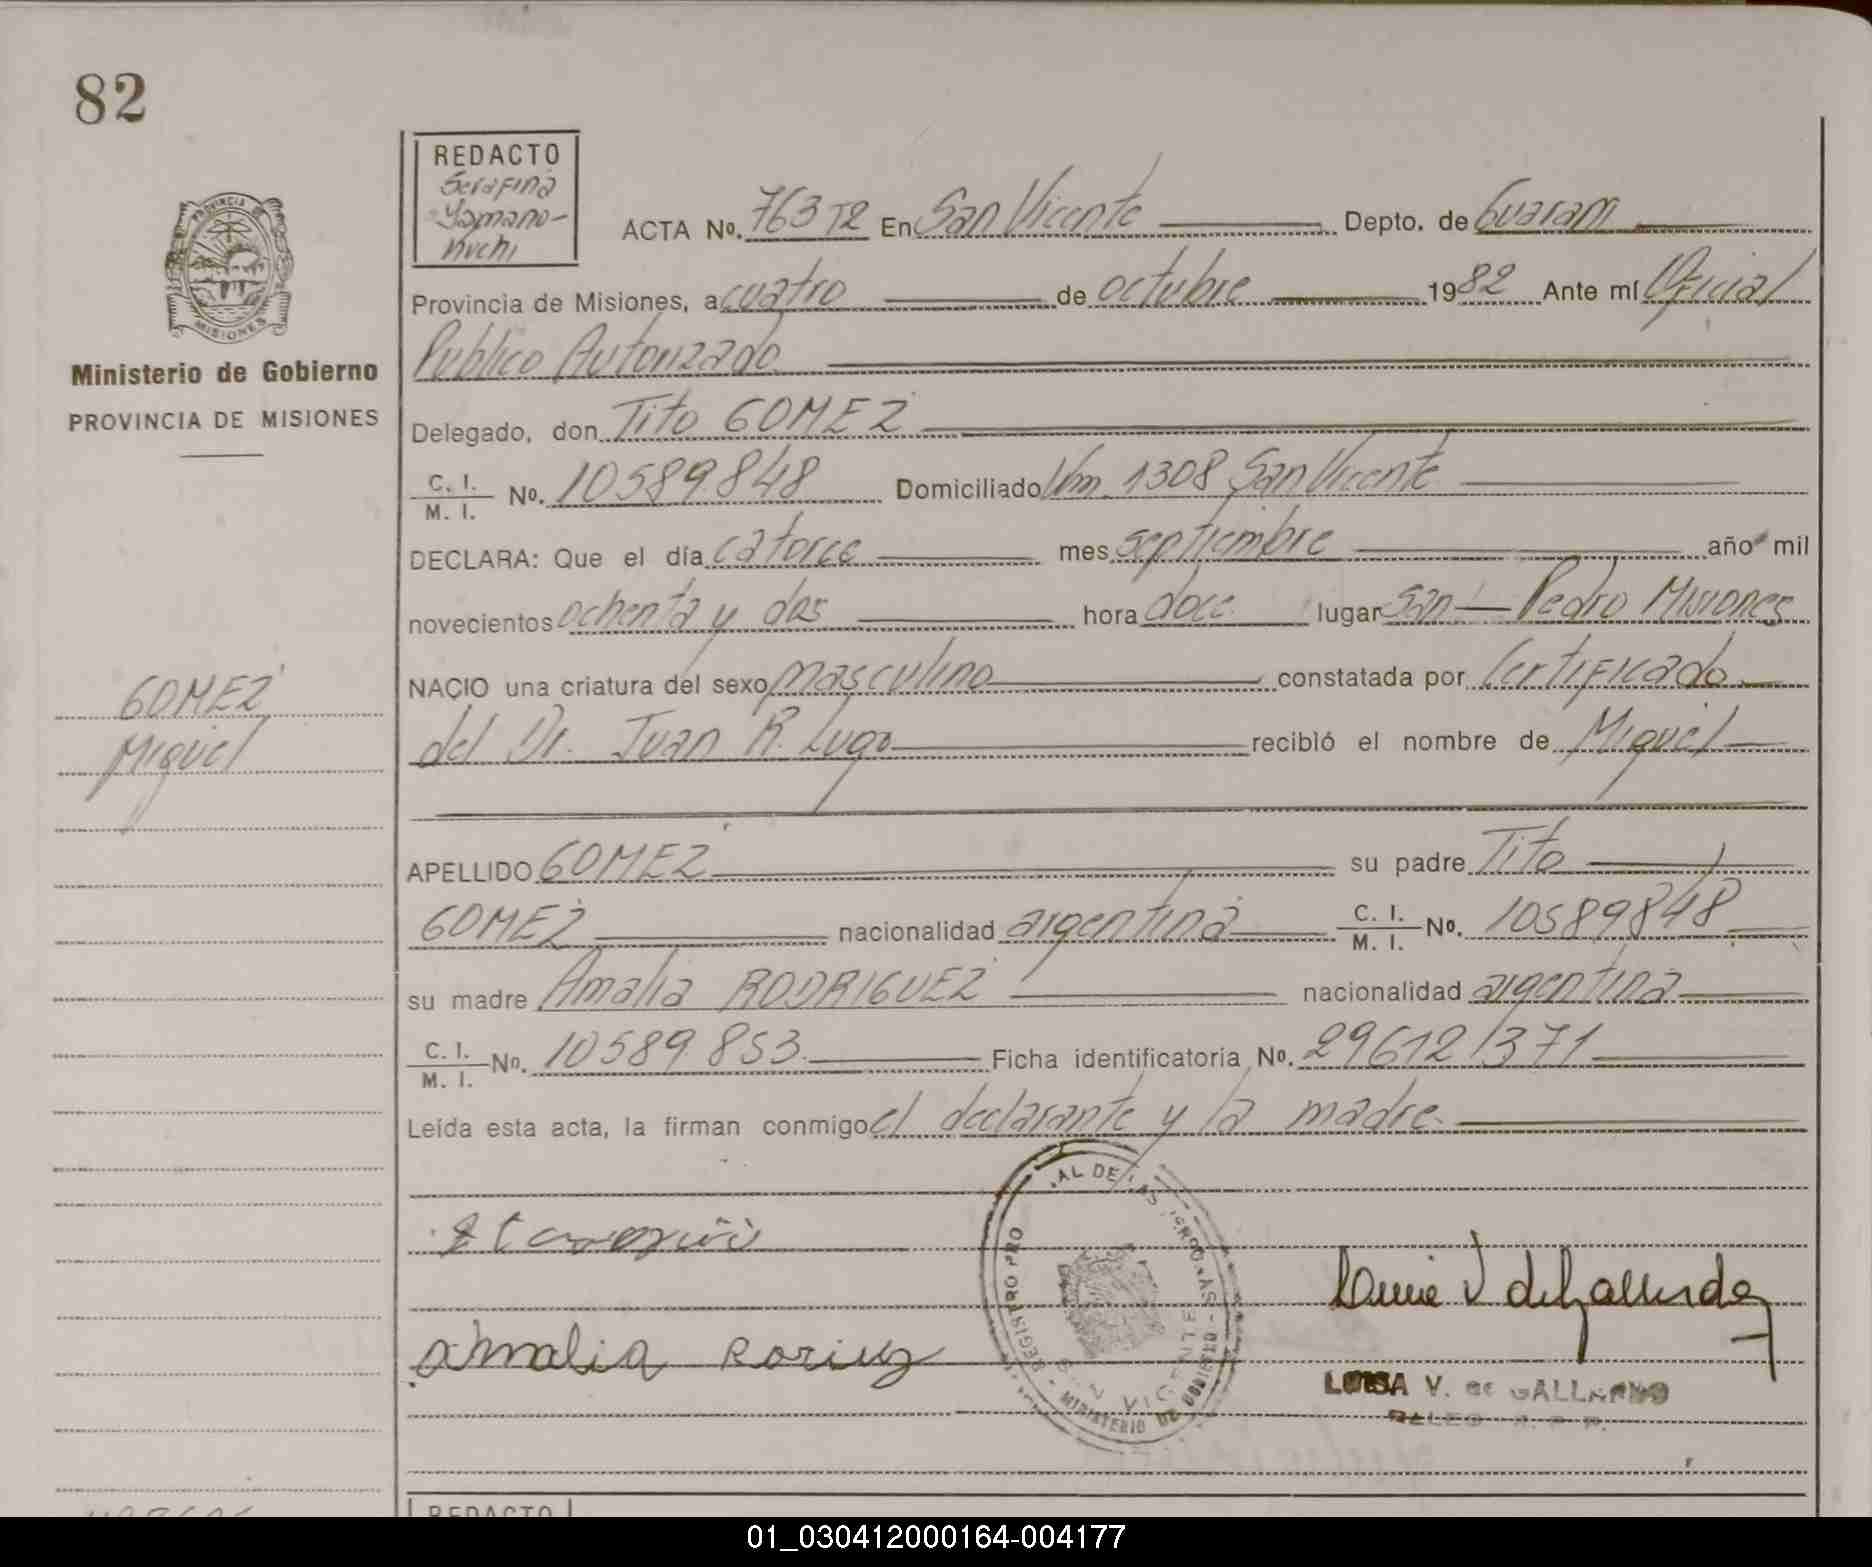 82
REDACTO
Serafina
Yamano-
huchi
PROVINCIA DE
MISIONES
Ministerio de Gobierno
PROVINCIA DE MISIONES
GOMEZ
Miguel
ACTA No. 763 T2 En San Vicente Depto. de Guaram
Provincia de Misiones, a cuatro de octubre 1982 Ante mí Oficial
Publico Autorizado
Delegado, don Tito GOMEZ
C. I.
M. I. No. 10589848 Domiciliado Km. 1308 San Vicente
DECLARA: Que el día catorce mes septiembre año mil
novecientos ochenta y dos hora doce lugar San - Pedro Misiones
NACIO una criatura del sexo masculino constatada por Certificado
del Dr. Juan R. Lugo recibió el nombre de Miguel
APELLIDO GOMEZ su padre Tito
GOMEZ nacionalidad argentina C. I.
M. I. No. 10589848
su madre Amalia RODRIGUEZ nacionalidad argentina
C. I.
M. I. No. 10589.853 Ficha identificatoria No. 29612/371
Leída esta acta, la firman conmigo el declarante y la madre.
REGISTRO PRO AL DE LAS
SAN VICENTE
MINISTERIO DE GOBIERNO
Amalia
LUISA V. de GALLARDO
REDACTO
01_030412000164-004177